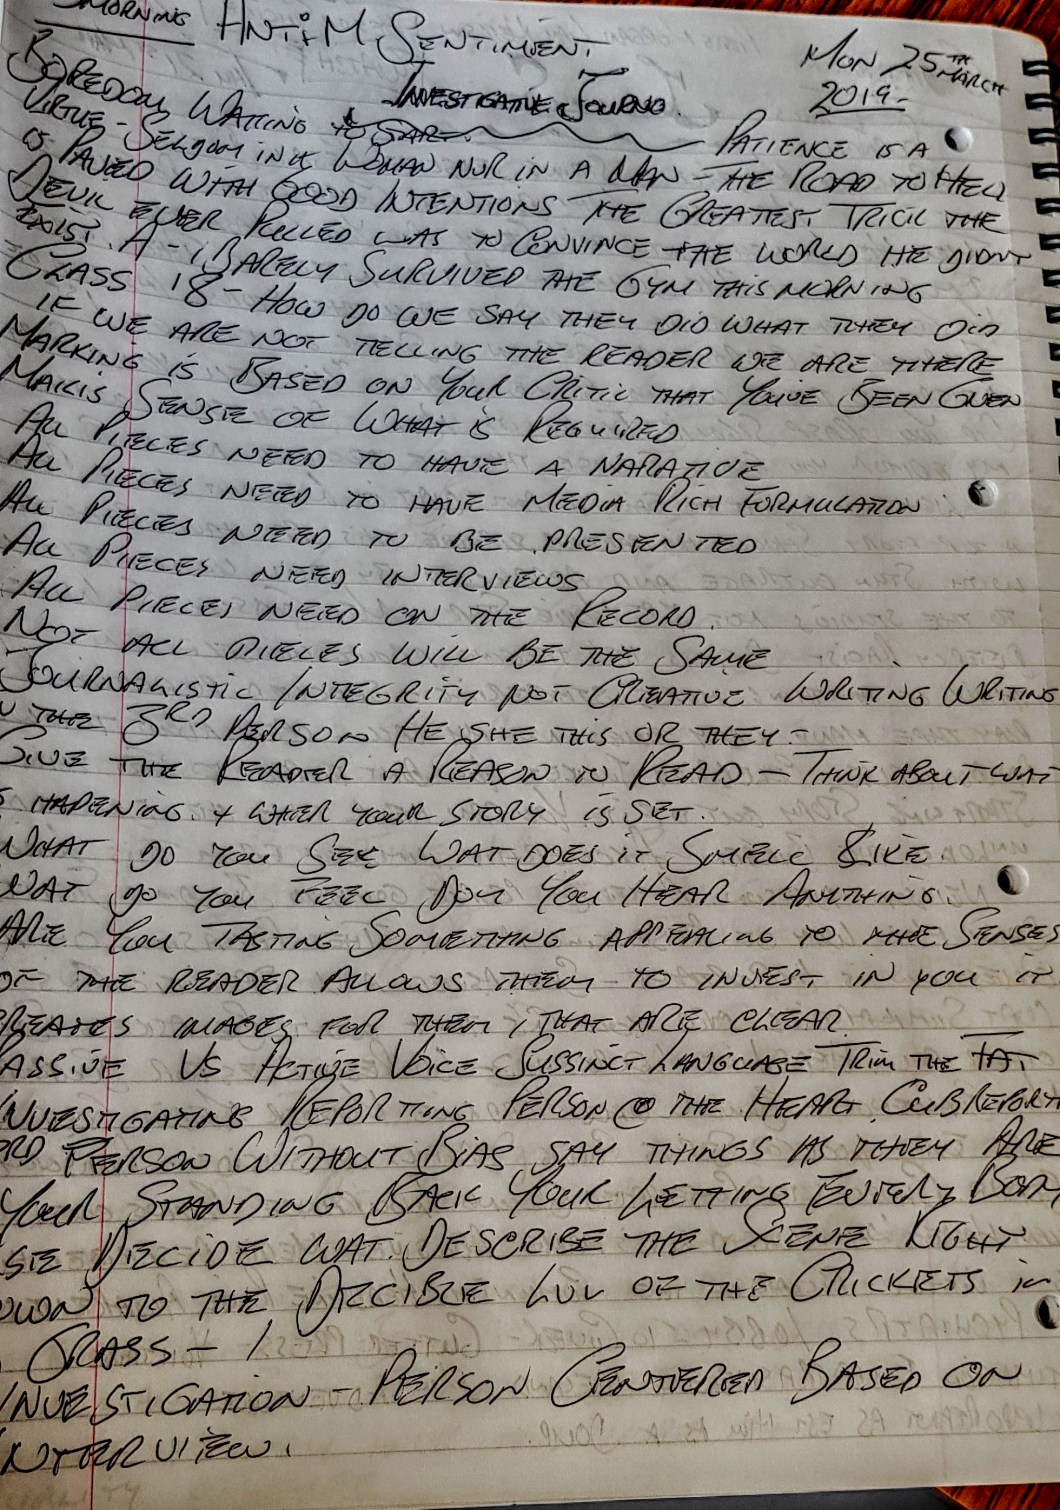 MORNING ANTI M SENTIMENT MON 25TH MARCH
INVESTIGATIVE JOURNO. 2019-
BOREDOM WAITING TO START PATIENCE IS A
VIRTUE - SELDOM IN A WOMAN NUR IN A MAN - THE ROAD TO HELL
IS PAVED WITH GOOD INTENTIONS THE GREATEST TRICK THE
DEVIL EVER PULLED WAS TO CONVINCE THE WORLD HE DIDNT
EXIST. A - I BARELY SURVIVED THE GYM THIS MORNING
- CLASS 18 - HOW DO WE SAY THEY DID WHAT THEY DID
IF WE ARE NOT TELLING THE READER WE ARE THERE
MARKING IS BASED ON YOUR CRITIC THAT YOUVE BEEN GIVEN
MAKIS SENSE OF WHAT IS REQUIRED
ALL PIECES NEED TO HAVE A NARATIVE
ALL PIECES NEED TO HAVE MEDIA RICH FORMULATION
ALL PIECES NEED TO BE PRESENTED
ALL PIECES NEED INTERVIEWS
ALL PIECES NEED ON THE RECORD.
NOT ALL PIECES WILL BE THE SAME
JOURNALISTIC INTEGRITY NOT CREATIVE WRITING WRITING
N THE 3RD PERSON HE SHE THIS OR THEY -
GIVE THE READER A REASON TO READ - THINK ABOUT WAT
S HAPENING. + WHER YOUR STORY IS SET.
WHAT DO YOU SEE WAT DOES IT SMELL LIKE.
WAT DO YOU FEEL DOY YOU HEAR ANYTHING.
ARE YOU TASTING SOMETHING APPEALING TO THE SENSES
OF THE READER ALLOWS THEM TO INVEST IN YOU IT
CREATES IMAGES FOR THEM, THAT ARE CLEAR
PASSIVE VS ACTIVE VOICE SUSSINCT LANGUAGE TRIM THE FAT
INVESTIGATING REPORTING PERSON @ THE HEART CUB REPORT
3RD PERSON WITHOUT BIAS SAY THINGS AS THEY ARE
YOUR STANDING BACK YOUR LETTING EVERY BODY
LSE DECIDE WAT. DESCRIBE THE SCENE RIGHT
DOWN TO THE DECIBLE LUL OF THE CRICKETS IN
GRASS - /
INVESTIGATION - PERSON CENTERED BASED ON
INTERVIEW.